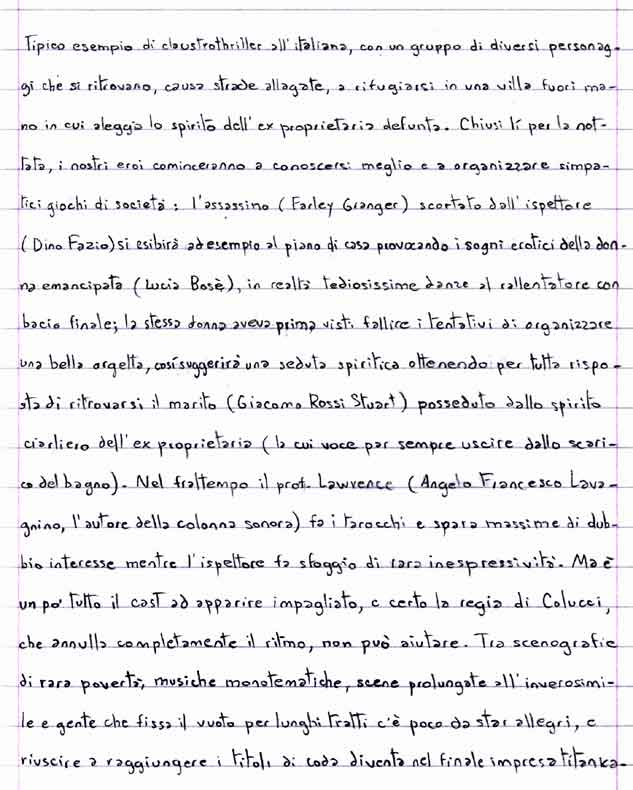 Tipico esempio di claustrothriller all'italiana, con un gruppo di diversi personag-
gi che si ritrovano, causa strade allagate, a rifugiarsi in una villa fuori ma-
no in cui aleggia lo spirito dell'ex proprietaria defunta. Chiusi lí per la not-
tata, i nostri eroi cominceranno a conoscersi meglio e a organizzare simpa-
tici giochi di società: l'assassino (Farley Granger) scortato dall'ispettore
(Dino Fazio) si esibirà ad esempio al piano di casa provocando i sogni erotici della don-
na emancipata (Lucia Bosè), in realtà tediosissime danze al rallentatore con
bacio finale; la stessa donna aveva prima visti fallire i tentativi di organizzare
una bella orgetta, cosí suggerirà una seduta spiritica ottenendo per tutta rispo-
sta di ritrovarsi il marito (Giacomo Rossi Stuart) posseduto dallo spirito
ciarliero dell'ex proprietaria (la cui voce par sempre uscire dallo scari-
co del bagno). Nel frattempo il prof. Lawrence (Angelo Francesco Lava-
gnino, l'autore della colonna sonora) fa i tarocchi e spara massime di dub-
bio interesse mentre l'ispettore fa sfoggio di rara inespressività. Ma è
un po' tutto il cast ad apparire impagliato, e certo la regia di Colucci,
che annulla completamente il ritmo, non può aiutare. Tra scenografie
di rara povertà, musiche monotematiche, scene prolungate all'inverosimi-
le e gente che fissa il vuoto per lunghi tratti c'è poco da star allegri, e
riuscire a raggiungere i titoli di coda diventa nel finale impresa titanica.